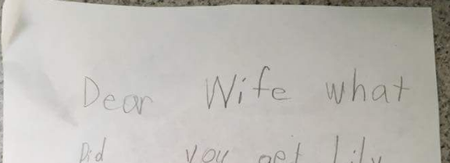 Dear Wife what
Did you get Lily